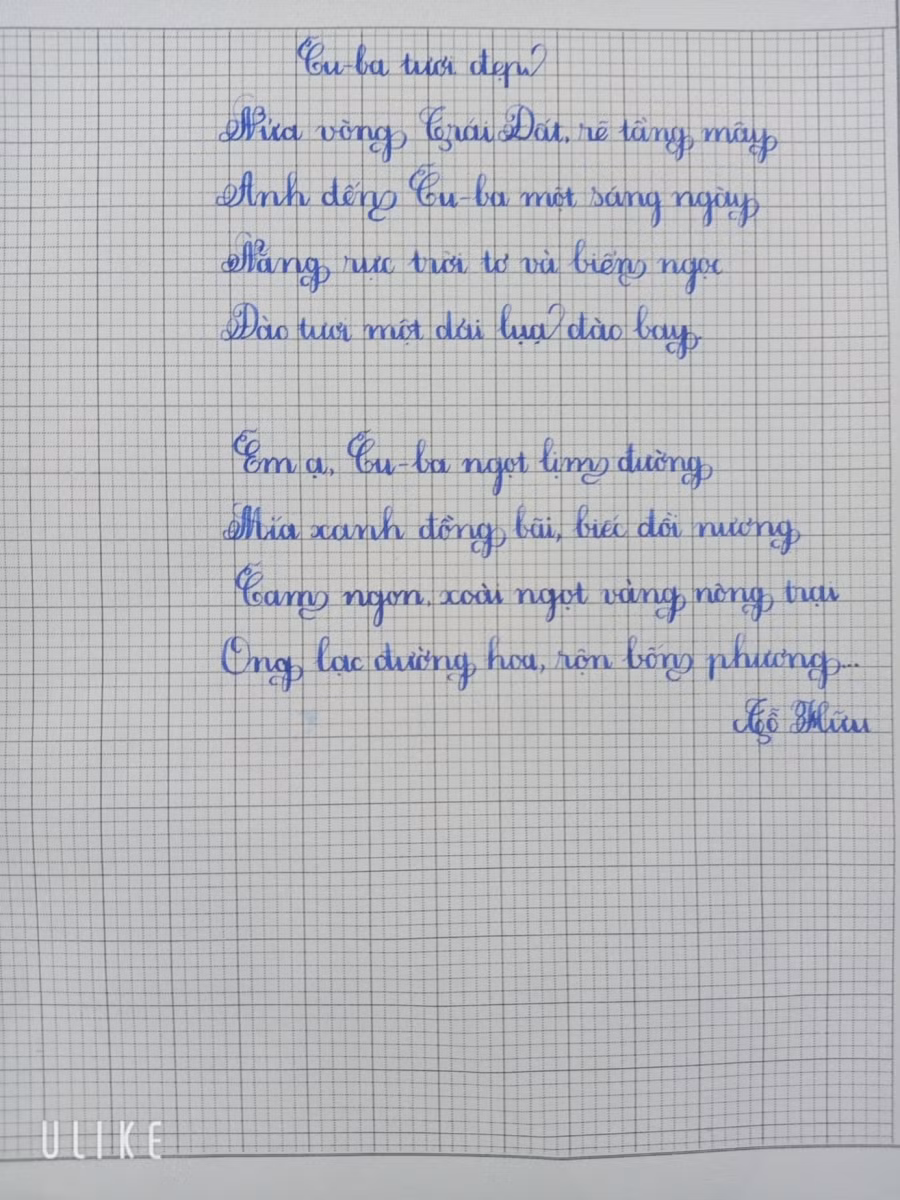 Cu-ba tươi đẹp
Nửa vòng Trái Đất, rẽ tầng mây
Anh đến Cu-ba một sáng ngày
Nắng rực trời tơ và biển ngọc
Đảo tươi một dải lụa đào bay
Em ạ, Cu-ba ngọt lịm đường
Mía xanh đồng bãi, biếc đồi nương
Cam ngon, xoài ngọt vàng nông trại
Ong lạc đường hoa, rộn bốn phương...
Tố Hữu
ULIKE